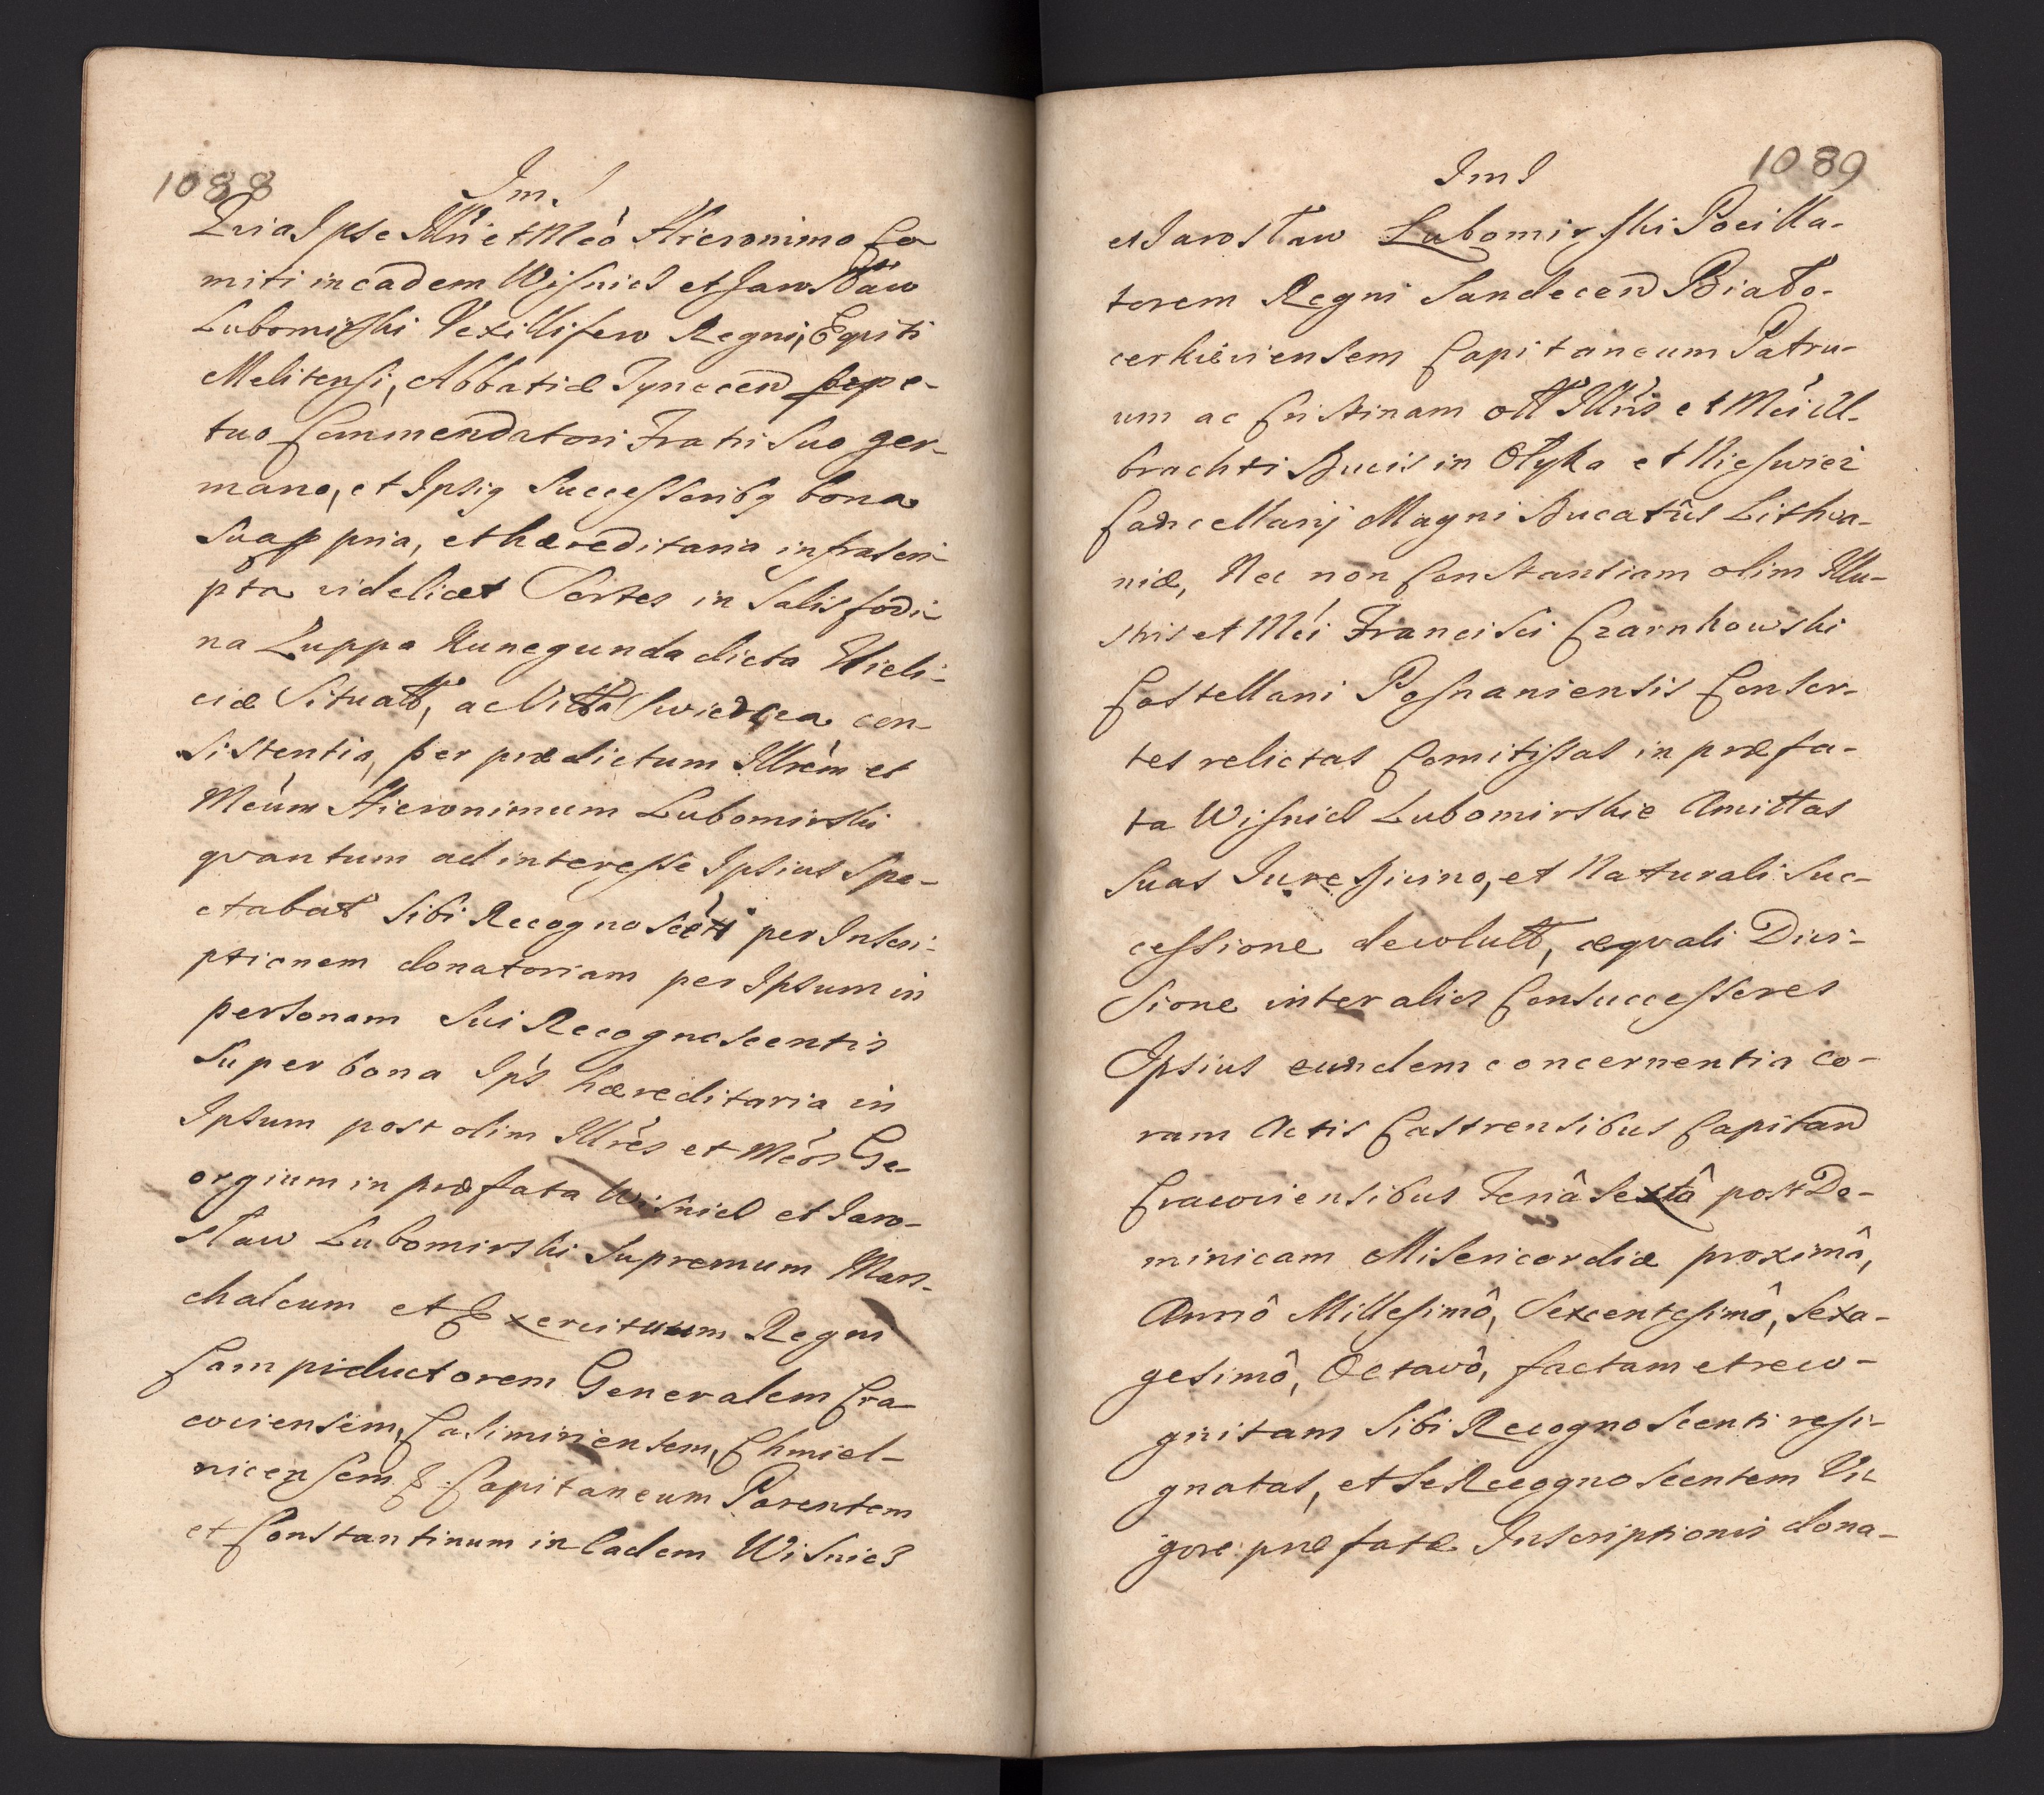 1088
Im.
Quia Ipse Illri et Mco Hieronimo Co
miti in eadem Wisnicz et Jarosław
Lubomirski Vexillifero Regni, Equiti
Melitensi, Abbatiæ Tynecen perpe-
tuo Commendatori Fratri Suo ger-
mano, et Ipsiq Successoribq bona
Sua ppria, et hæreditaria infrascri-
pta videlicet Sortes in Salisfodi-
na Zuppa Kunegunda dicta Wieli-
ciæ Situatt, ac Villa Swiercza con-
sistentia, per prædictum Illrem et
Mcum Hieronimum Lubomirski
quantum ad interesse Ipsius Spe-
ctabat Sibi Recognoscēti per Inscri-
ptionem donatoriam per Ipsum in
personam Sui Recognoscentis
Super bona Ips hæreditaria in
Ipsum post olim Illres et Mcos Ge-
orgium in præfata Wisnicz et Jaro-
sław Lubomirski Supremum Mars-
chalcum et Exercituum Regni
Campiductorem Generalem Cra
coviensem, Casimiriensem, Chmiel-
nicensem & Capitaneum Parentem
et Constantinum in Eadem Wisnicz
1089
Im
et Jarosław Lubomirski Pocilla-
torem Regni Sandecen Biało-
cerkieviensem Capitaneum Patru-
um ac Cristinam oll Illris et Mci Al-
brachti Ducis in Ołyka et Nieswiez
Cancellarij Magni Ducatûs Lithva-
niæ, Nec non Constantiam olim Illu-
stris et Mci Francisci Czarnkowski
Castellani Posnaniensis Consor-
tes relictas Comitissas in præfa-
ta Wisnicz Lubomirskie Amittas
Suas Jure Divino, et Naturali Suc-
cessione devolutt, æquali Divi-
sione inter alios Consuccessores
Ipsius eundem concernentia co-
ram Actis Castrensibus Capitan
Cracoviensibus Feriâ Sextâ post Do-
minicam Misericordiæ proximâ,
Annô Millesimô, Sexcentesimô, Sexa-
gesimô, Octavô, factam et reco-
gnitam Sibi Recognoscenti resi-
gnatas, et Se Recognoscentem Vi-
gore præfatæ Inscriptionis dona-